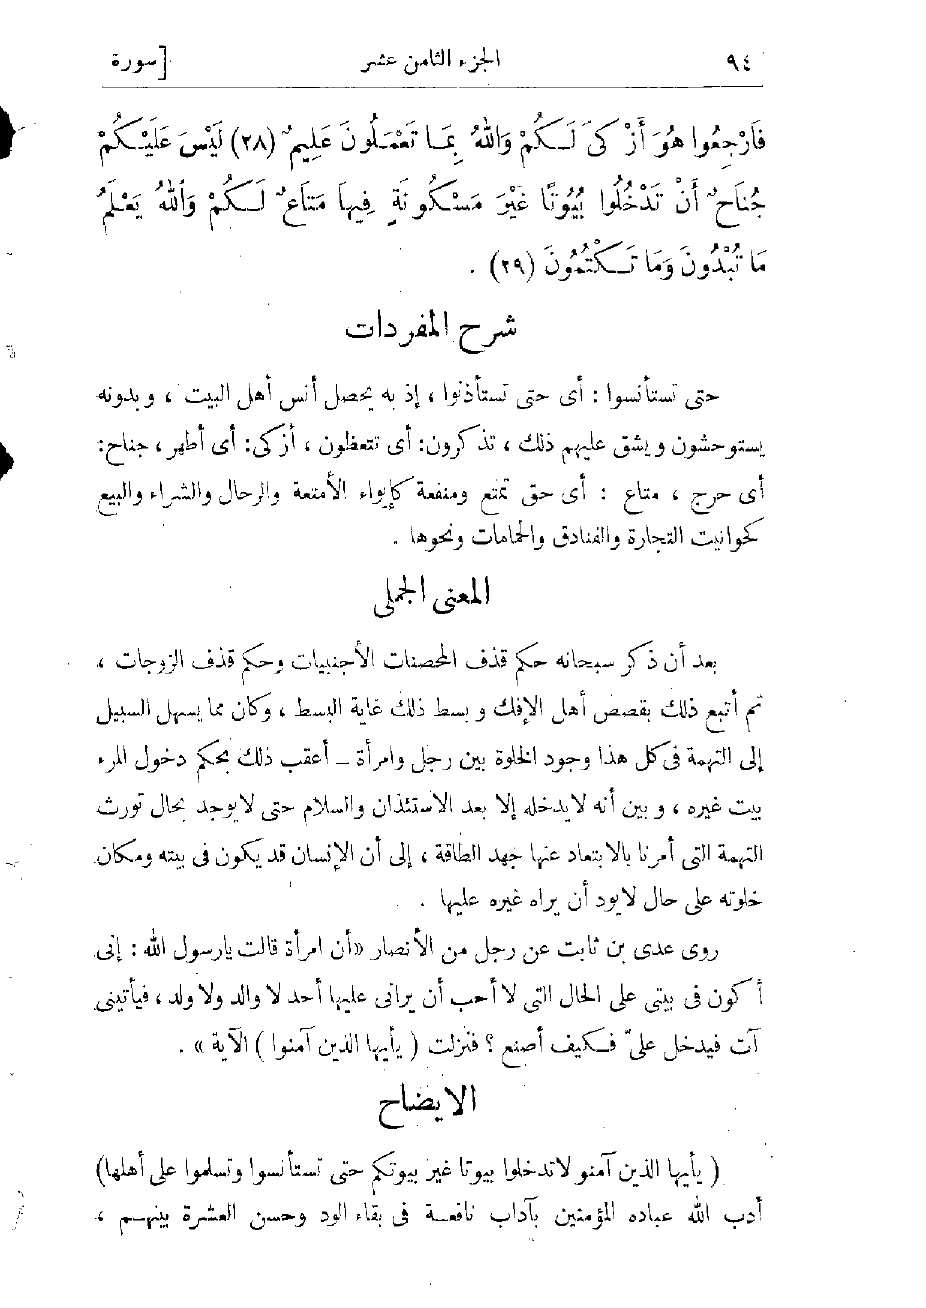 ٩٤ الجزء الثامن عشر [سورة
فَارْجِعُوا هُوَ أَزْكَىٰ لَكُمْ وَاللهُ بِمَا تَعْمَلُونَ عَلِيمٌ (٢٨) لَيْسَ عَلَيْكُمْ
جُنَاحٌ أَنْ تَدْخُلُوا بُيُوتًا غَيْرَ مَسْكُونَةٍ فِيهَا مَتَاعٌ لَكُمْ وَاللهُ يَعْلَمُ
مَا تُبْدُونَ وَمَا تَكْتُمُونَ (٢٩) .
شرح المفردات
حتى تستأنسوا : أى حتى تستأذنوا ، إذ به يحصل أنس أهل البيت ، وبدونه
يستوحشون ويشق عليهم ذلك ، تذكرون: أى تتعظون ، أزكى: أى أطهر ، جناح:
أى حرج ، متاع : أى حق تمتع ومنفعة كإيواء الأمتعة والرحال والشراء والبيع
كحوانيت التجارة والفنادق والحمامات ونحوها .
المعنى الجملى
بعد أن ذكر سبحانه حكم قذف المحصنات الأجنبيات وحكم قذف الزوجات ،
ثم أتبع ذلك بقصص أهل الإفك وبسط ذلك غاية البسط ، وكان مما يسهل السبيل
إلى التهمة فى كل هذا وجود الخلوة بين رجل وامرأة ــ أعقب ذلك بحكم دخول المرء
بيت غيره ، وبين أنه لا يدخله إلا بعد الاستئذان والسلام حتى لا يوجد بحال تورث
التهمة التى أمرنا بالابتعاد عنها جهد الطاقة ، إلى أن الإنسان قد يكون فى بيته ومكان
خلوته على حال لا يود أن يراه غيره عليها .
روى عدى بن ثابت عن رجل من الأنصار «أن امرأة قالت يارسول الله : إنى
أكون فى بيتى على الحال التى لا أحب أن يرانى عليها أحد لا والد ولا ولد ، فيأتينى
آت فيدخل علىّ فكيف أصنع ؟ فنزلت ( يأيها الذين آمنوا ) الآية » .
الايضاح
( يأيها الذين آمنو لاتدخلوا بيوتا غير بيوتكم حتى تستأنسوا وتسلموا على أهلها)
أدب الله عباده المؤمنين بآداب نافعة فى بقاء الود وحسن العشرة بينهم ،